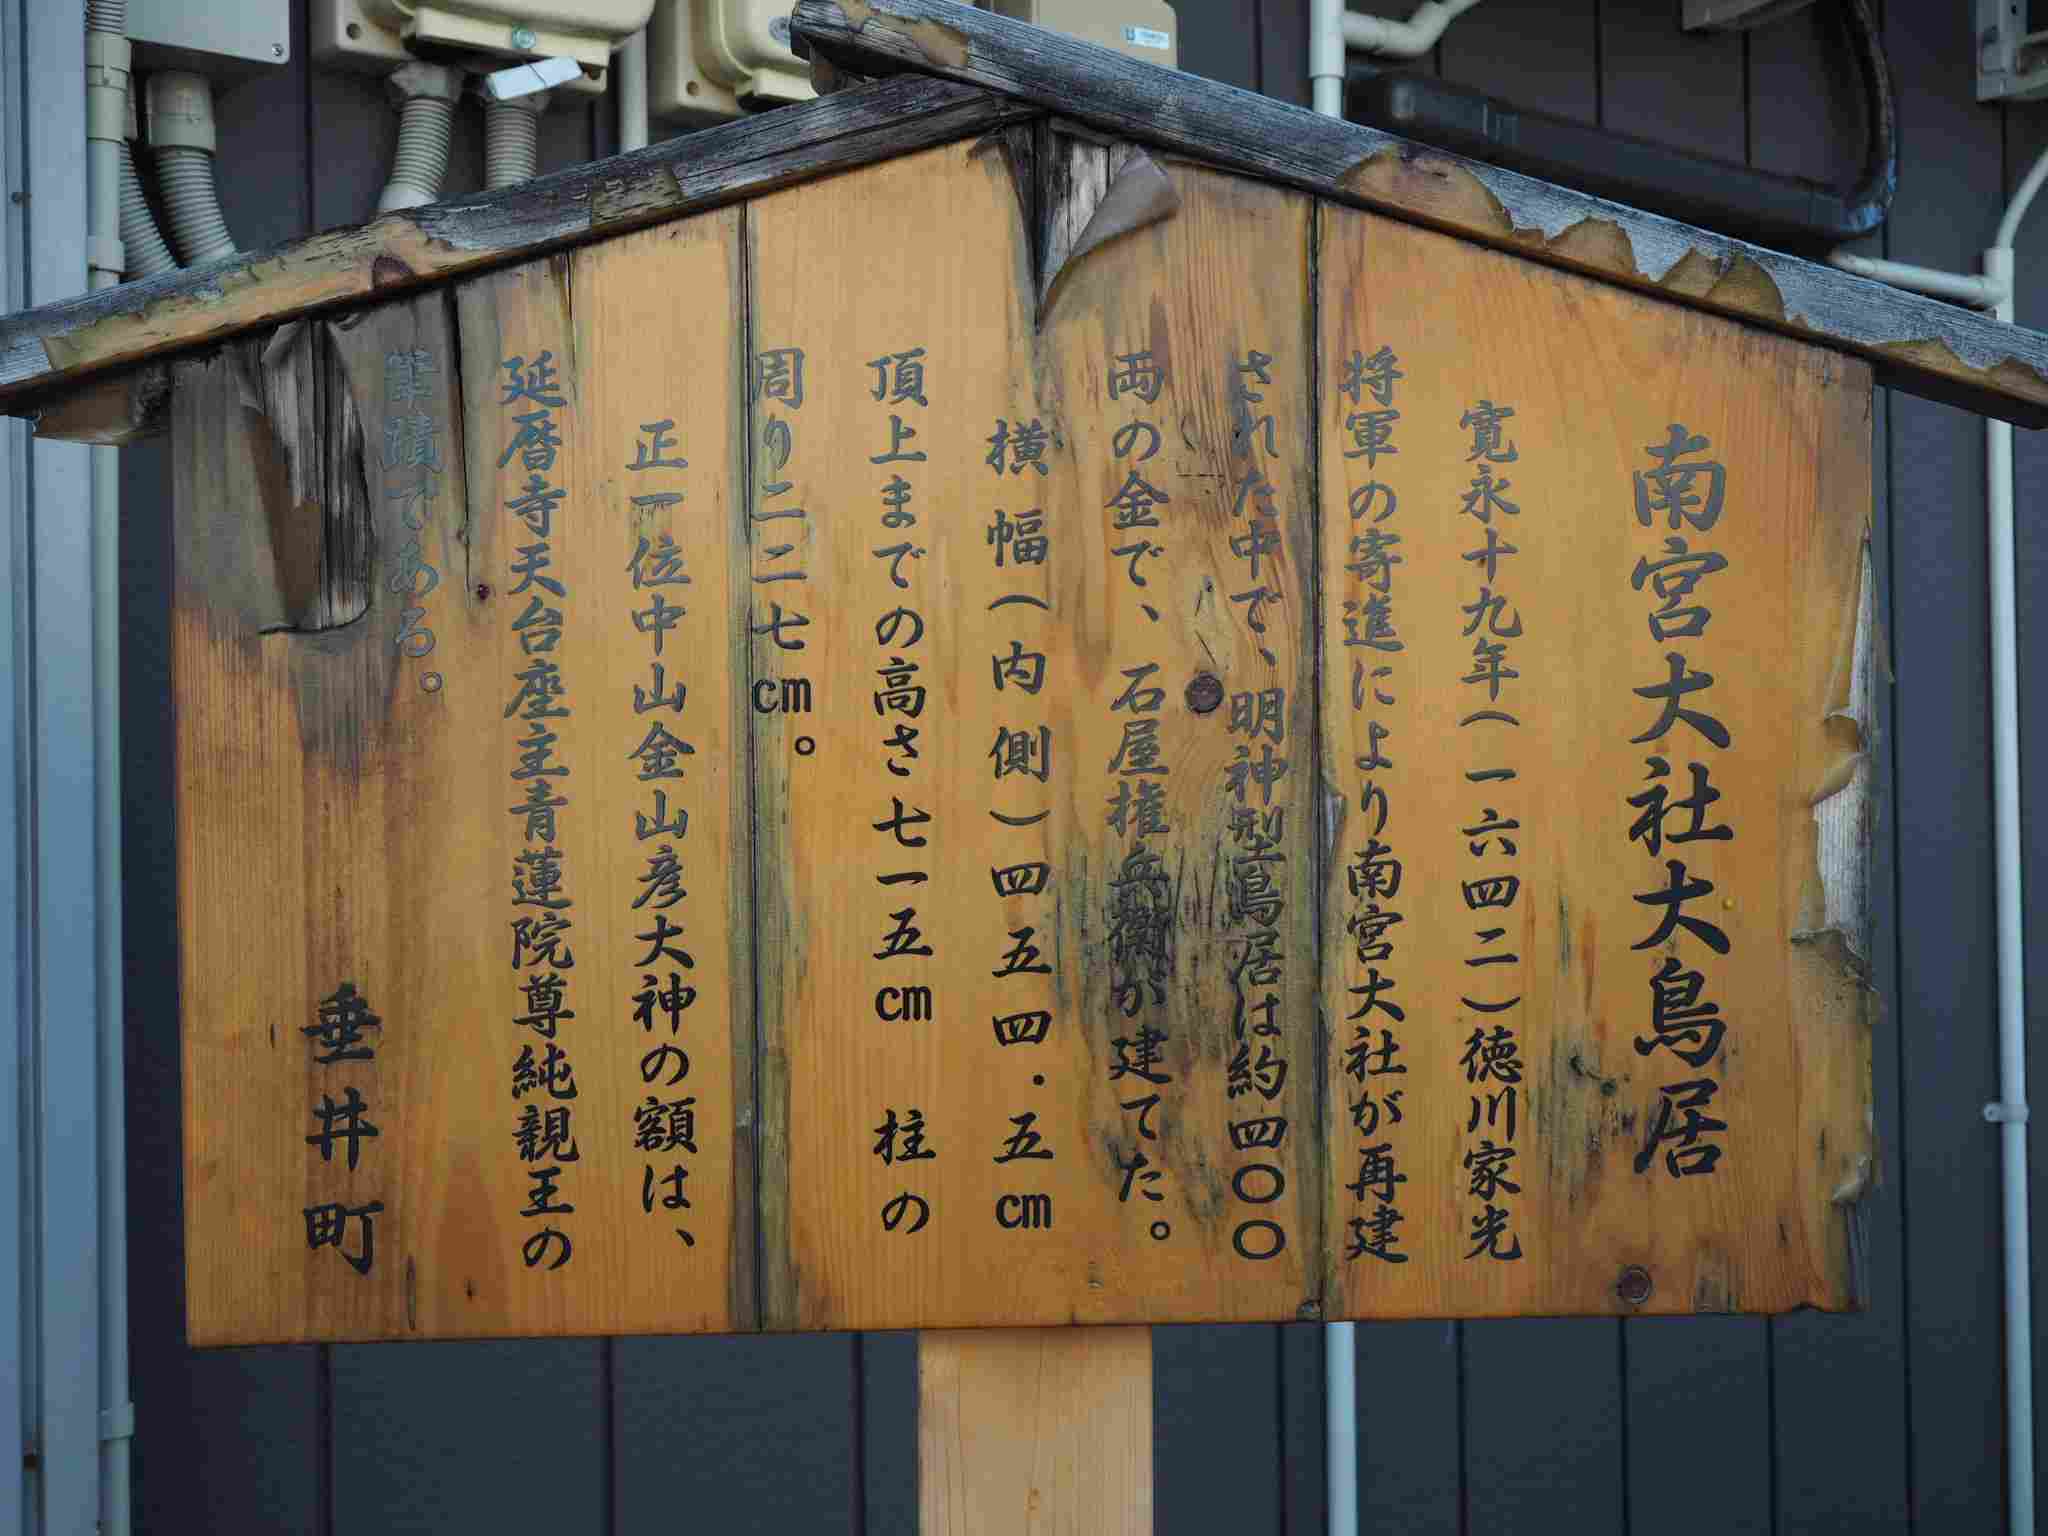 南宮大社大鳥居
寛永十九年(一六四二)徳川家光
将軍の寄進により南宮大社が再建
された中で、明神型鳥居は約四〇〇
両の金で、石屋権兵衛が建てた。
横幅(内側)四五四・五cm
頂上までの高さ七一五cm 柱の
周り二二七cm。
正一位中山金山彦大神の額は、
延暦寺天台座主青蓮院尊純親王の
筆蹟である。
垂井町